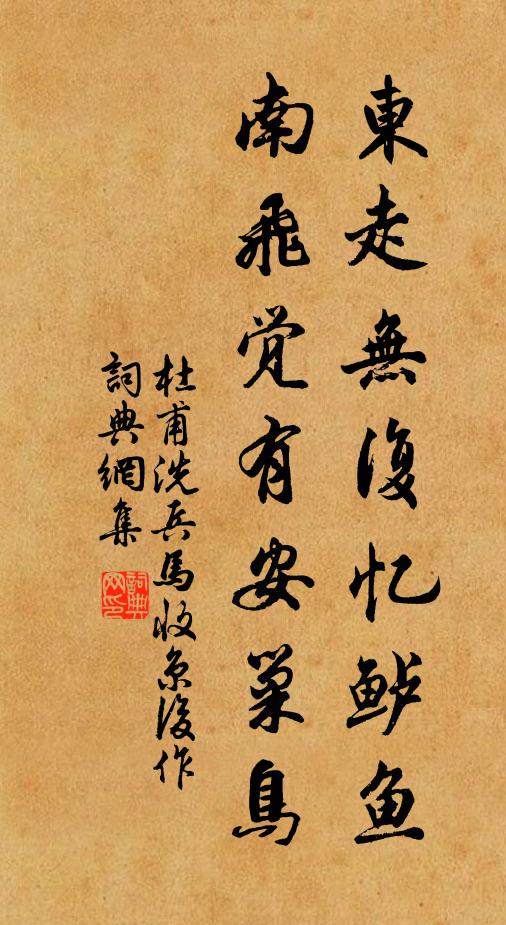 東走無復忆鲈鱼
南飛觉有安巢鳥
杜甫洗兵馬收京後作
詞典網集
詞典
网印